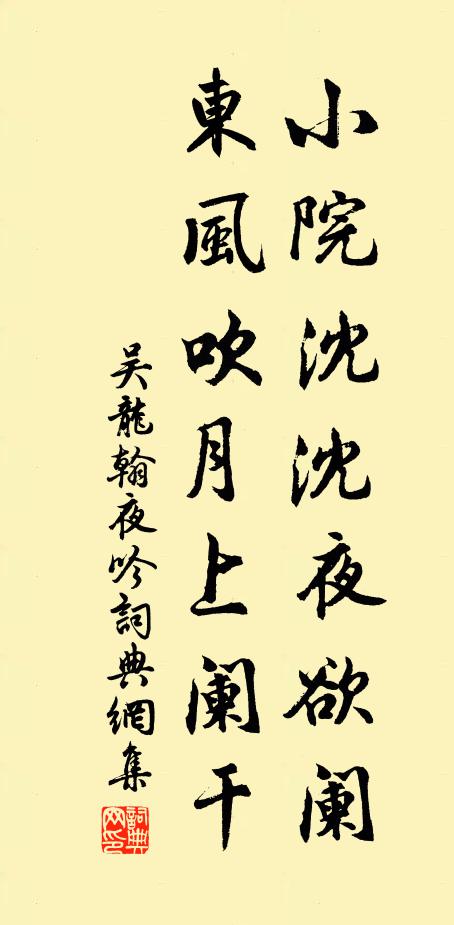 小院沈沈夜欲阑
東風吹月上阑干
吴龍翰夜吟詞典網集
詞典網印